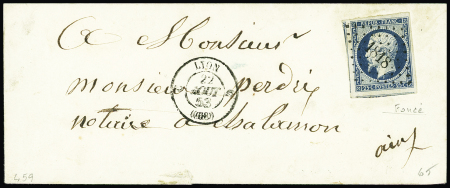 A Monsieur
monsieur perdrix
notaire a chalamon
ain
LYON
22
AOUT
53
(68)
REPUB. FRANC.
25 C. POSTES 25 C.
1818
Foncé
459
65